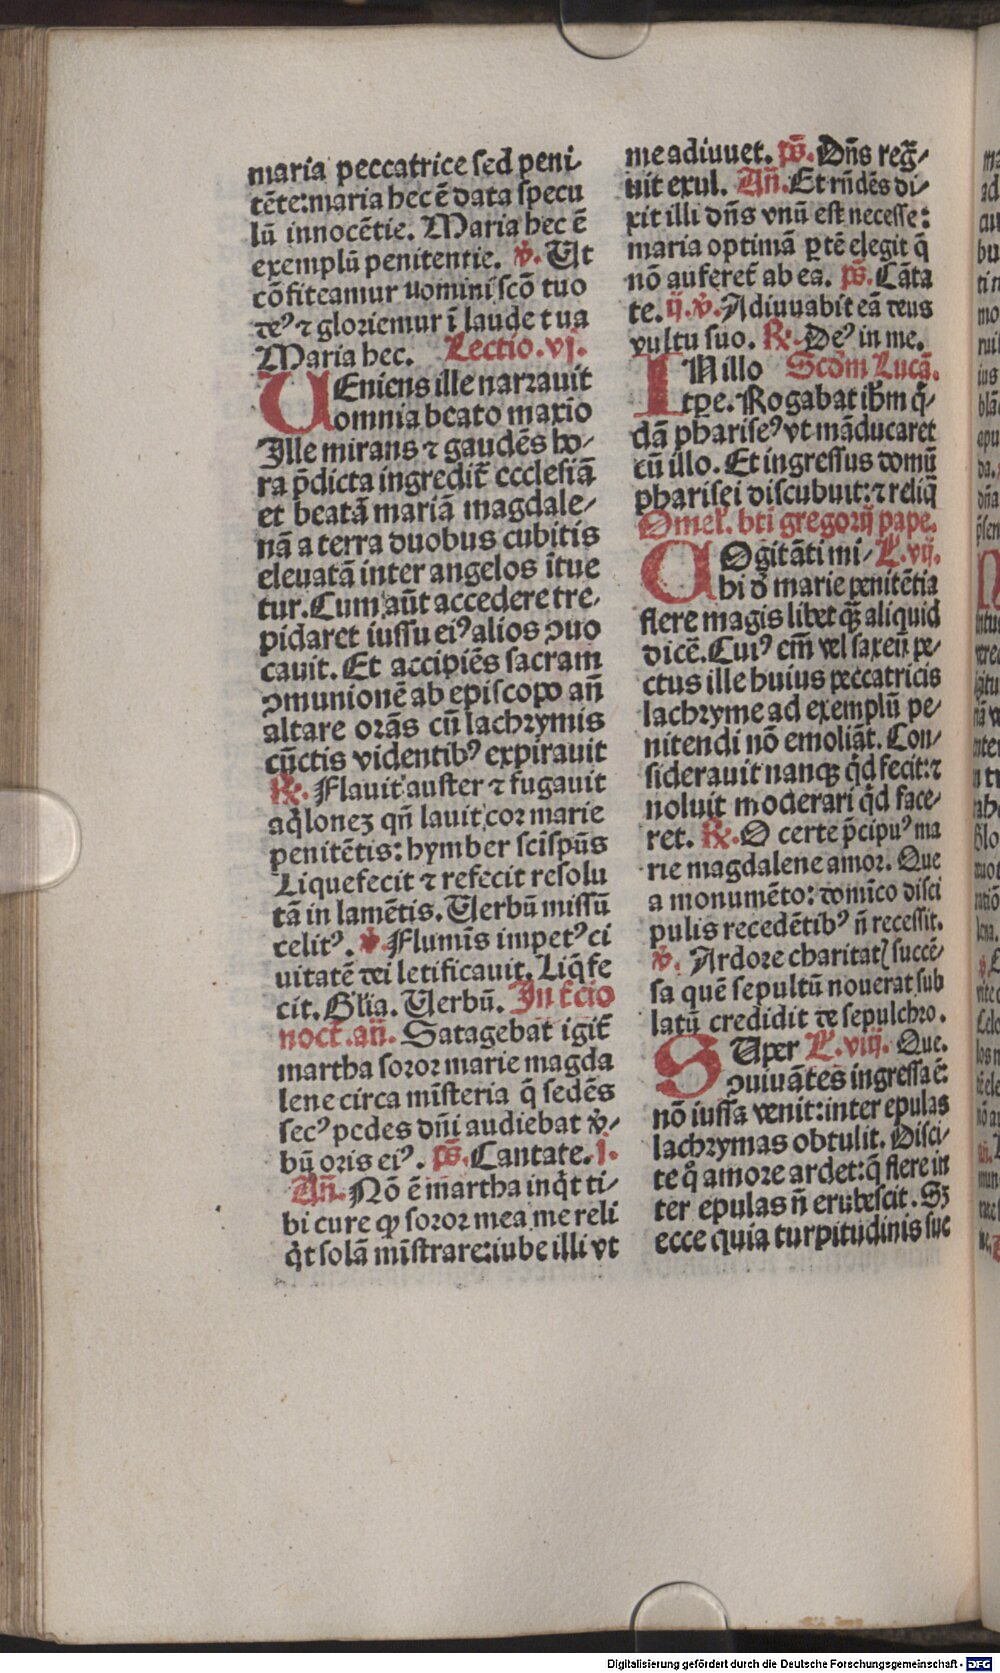 maria peccatrice sed peni-
tēte:maria hec ē data specu
lū innocētie. Maria hec ē
exemplū penitentie. ℣. Ut
cōfiteamur nomini scō tuo
deꝰ ⁊ gloriemur ī laude tua
Maria hec. Lectio.vj.
UEniens ille narrauit
omnia beato maxīo
Ille mirans ⁊ gaudēs ho-
ra p̄dicta ingredit̄ ecclesiā
et beatā mariā magdale-
nā a terra duobus cubitis
eleuatā inter angelos ītue
tur. Cum aūt accedere tre-
pidaret iussu eiꝰ alios ↄuo
cauit. Et accipiēs sacram
ↄmunionē ab episcopo an̄
altare orās cū lachrymis
cūctis videntibꝰ expirauit
℟. Flauit auster ⁊ fugauit
aq̇lonez qn̄ lauit cor marie
penitētis: hymber sc̄i sp̄us
Liquefecit ⁊ refecit resolu
tā in lamētis. Uerbū missū
celitꝰ. ℣. Flumīs impetꝰ ci
uitatē dei letificauit. Liq̄fe
cit. Gl̄ia. Uerbū. In t̄cio
noct̄.an̄. Satagebat igit̄
martha soror marie magda
lene circa mīsteria q̄ sedēs
secꝰ pedes dn̄i audiebat v̓-
bū oris eiꝰ. ps̄. Cantate. j.
An̄. Nō ē martha inq̇t ti-
bi cure ꝙ soror mea me reli
q̇t solā mīstrare:iube illi vt
me adiuuet. ps̄. Dn̄s reḡ-
uit exul. An̄. Et rn̄dēs di-
xit illi dn̄s vnū est necesse:
maria optimā ꝑtē elegit q̄
nō auferet̄ ab ea. ps̄. Cāta
te. ij. ℣. Adiuuabit eā deus
vultu suo. ℟. Deꝰ in me.
IN illo Scd̄m Lucā.
tꝑe. Rogabat ih̄m q̇-
dā phariseꝰ vt māducaret
cū illo. Et ingressus domū
pharisei discubuit:⁊ reliq̄
Omel̄. bt̄i gregorij pape.
COgitāti mi- L.vij.
hi d̓ marie penitētia
flere magis libet qꝫ aliquid
dicē. Cuiꝰ em̄ vel saxeū pe-
ctus ille huius peccatricis
lachryme ad exemplū pe-
nitendi nō emoliāt. Con-
siderauit nanqꝫ q̇d fecit:⁊
noluit moderari q̇d face-
ret. ℟. O certe p̄cipuꝰ ma
rie magdalene amor. Que
a monumēto: domīco disci
pulis recedētibꝰ n̄ recessit.
℣. Ardore charitatꝭ succē-
sa quē sepultū nouerat sub
latū credidit de sepulchro.
SUper L.viij. Que.
ↄuiuātes ingressa ē:
nō iussa venit:inter epulas
lachrymas obtulit. Disci-
te q̊ amore ardet:q̄ flere in
ter epulas n̄ erubescit. Sꝫ
ecce quia turpitudinis sue
Digitalisierung gefördert durch die Deutsche Forschungsgemeinschaft - DFG